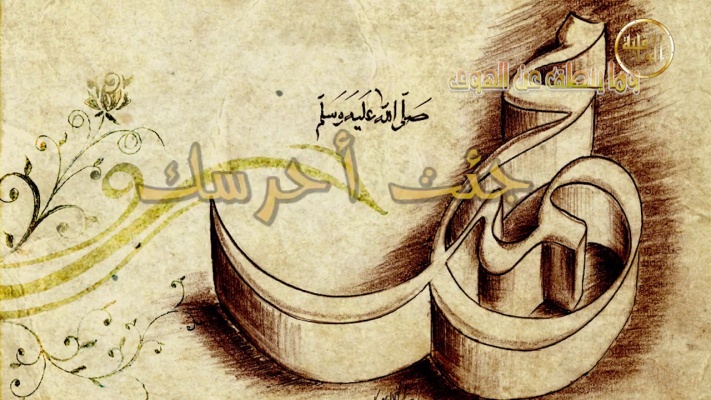 وما ينطق عن الهوى
صَلَّى اللهُ عَلَيْهِ وَسَلَّم
جئت أحرسك
محمد